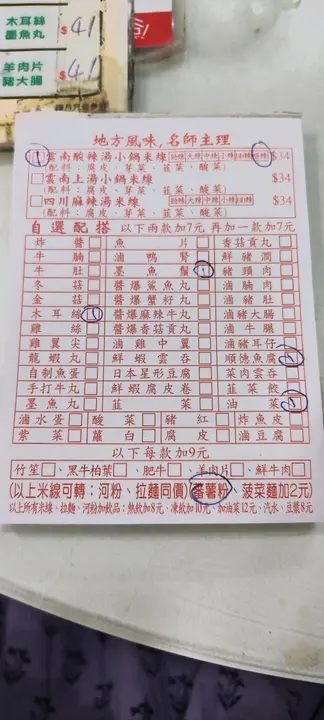 木耳絲
墨魚丸
$41
羊肉片
豬大腸
$41
地方風味,名師主理
雲南酸辣湯小鍋米線 $34
(配料：腐皮、芽菜、韮菜、酸菜)
雲南上湯小鍋米線 $34
(配料：腐皮、芽菜、韮菜、酸菜)
四川麻辣湯米線 $34
(配料：腐皮、芽菜、韮菜、酸菜)
自選配搭 以下兩款加7元 再加一款加7元
炸醬 魚片 香菇貢丸
牛腩 滷鴨腎 鮮豬潤
牛肚 墨魚鬚 1 豬頸肉
冬菇 醬爆鯊魚丸 滷腩肉
金菇 醬爆蟹籽丸 滷豬肚
木耳絲 1 醬爆麻辣牛丸 滷豬大腸
雞絲 醬爆香菇貢丸 滷牛𦟌
雞翼尖 滷雞中翼 滷豬耳仔
龍蝦丸 鮮蝦雲吞 順德魚腐
自制魚蛋 日本星形豆腐 菜肉雲吞
手打牛丸 鮮蝦腐皮卷 韮菜餃
墨魚丸 韮菜 油菜
滷水蛋 酸菜 豬紅 炸魚皮
紫菜 蘿白 腐皮 滷豆腐
以下每款加9元
竹笙、黑牛柏葉、肥牛、羊肉片、鮮牛肉
(以上米線可轉：河粉、拉麵同價)(蕃薯粉、菠菜麵加2元)
以上所有米線、拉麵、河粉加飲品：熱飲加8元、凍飲加10元、加油菜12元、汽水、豆漿8元